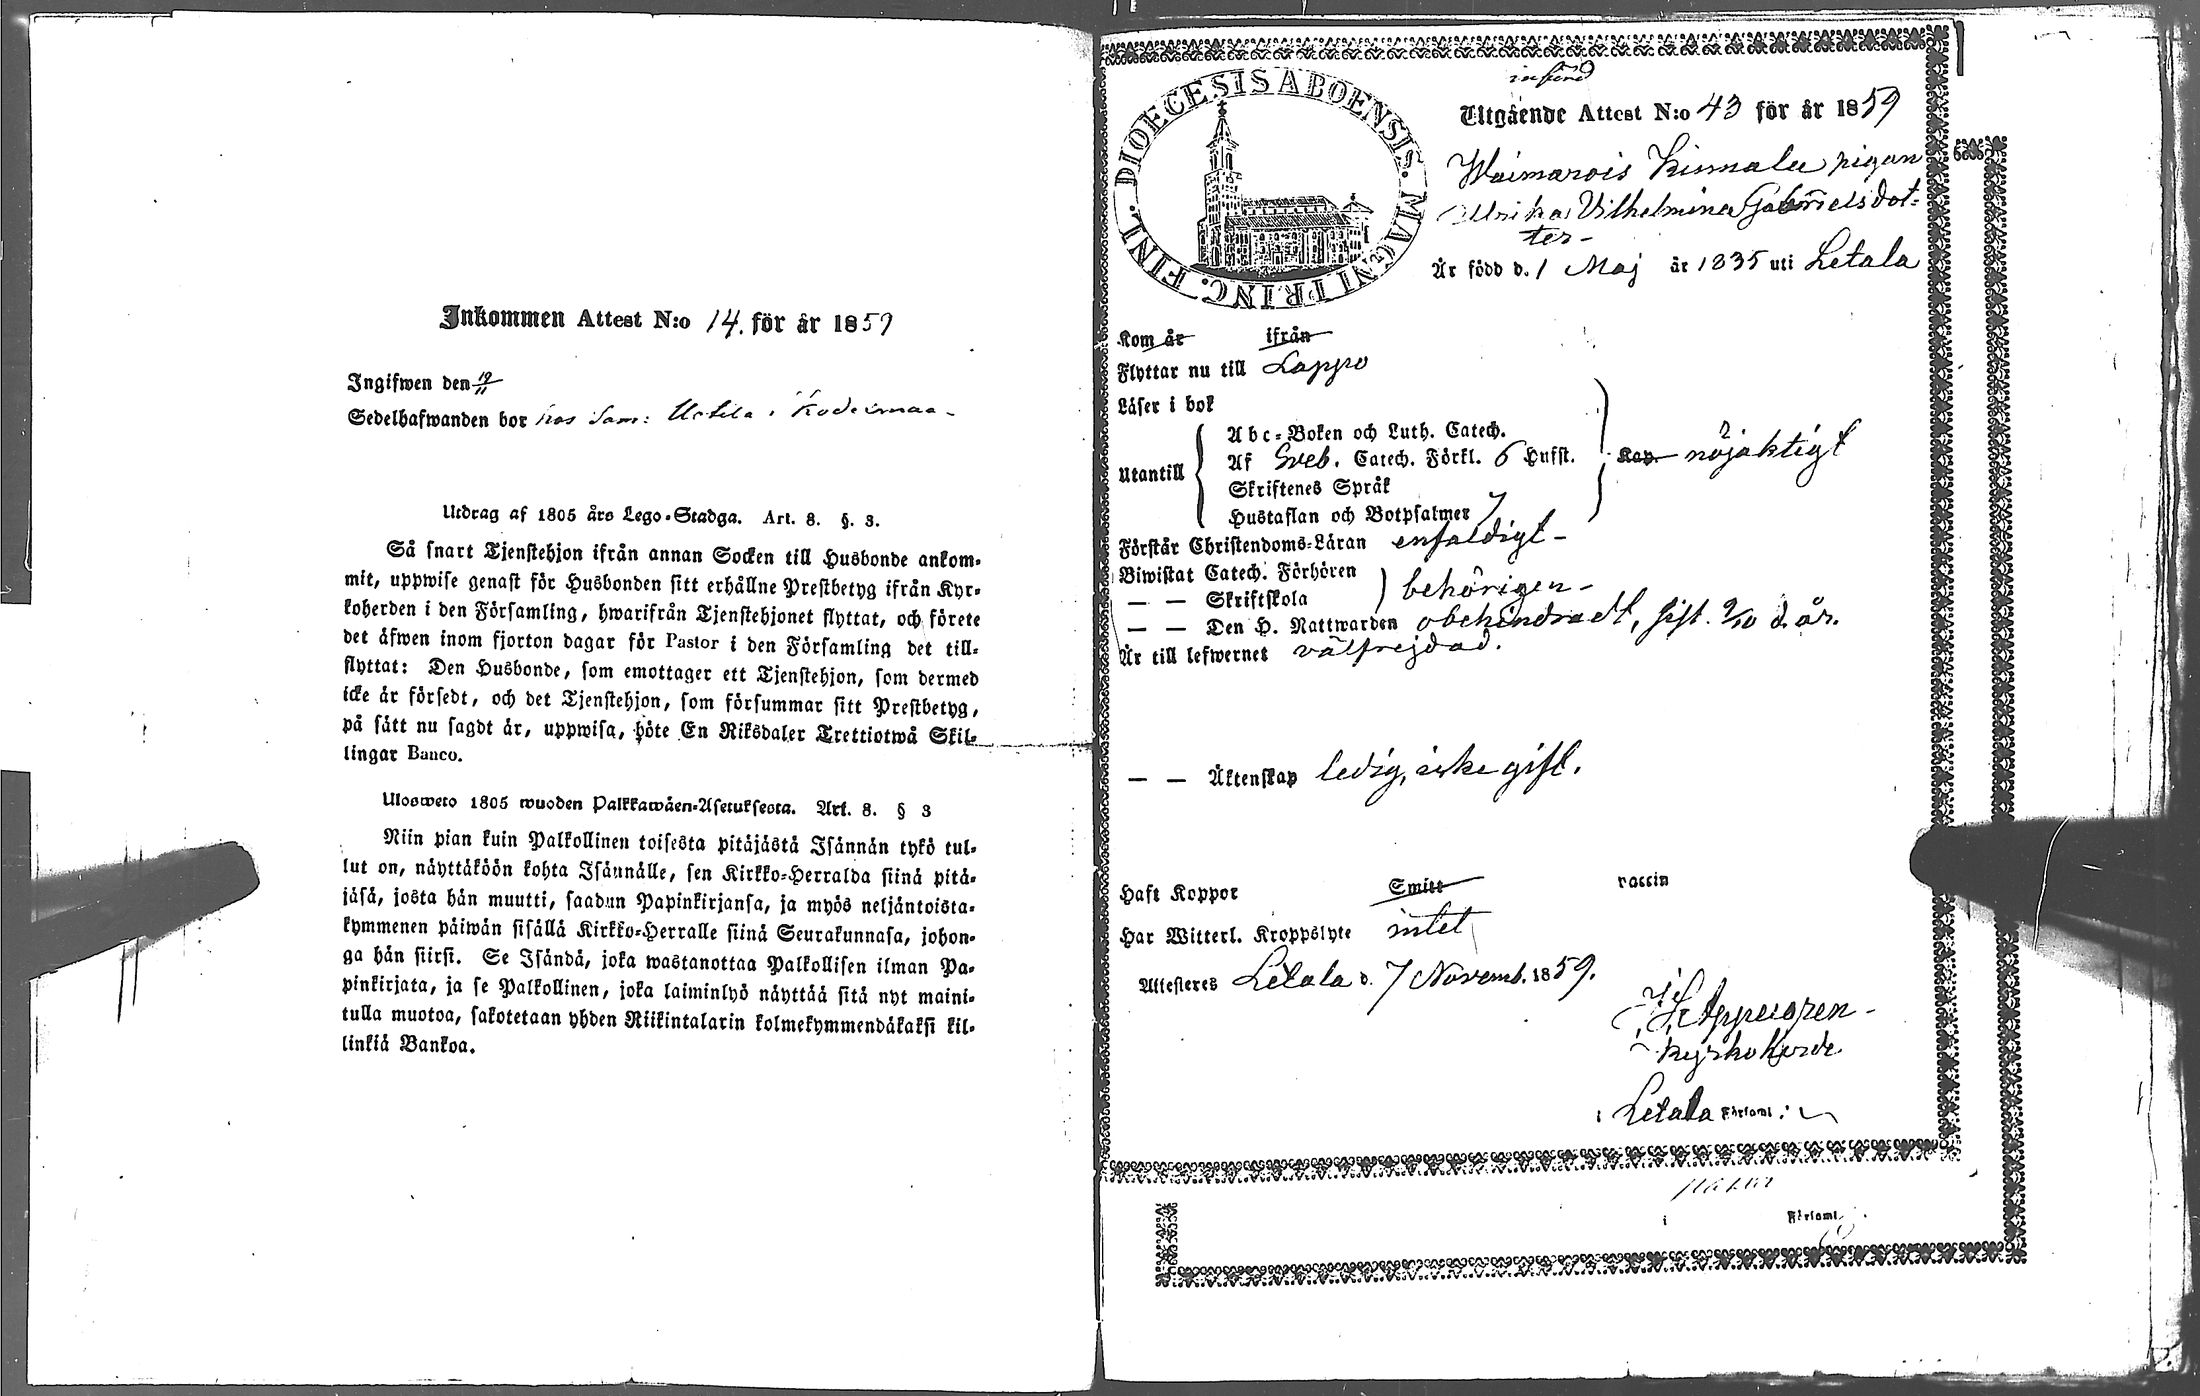 Inkommen Attest N:o 14. för år 1859
Ingifwen den 19/11
Sedelhafwanden bor hos Sam: Uotila i Kodisimaa -
Utdrag af 1805 års Lego-Stadga. Art. 8. §. 3.
Så snart Tjenstehjon ifrån annan Socken till Husbonde ankom-
mit, uppwise genast för Husbonden sitt erhållne Prestbetyg ifrån Kyr-
koherden i den Församling, hwarifrån Tjenstehjonet flyttat, och förete
det äfwen inom fjorton dagar för Pastor i den Församling det till-
flyttat: Den Husbonde, som emottager ett Tjenstehjon, som dermed
icke är försedt, och det Tjenstehjon, som försummar sitt Prestbetyg,
på sätt nu sagdt är, uppwisa, böte En Riksdaler Trettiotwå Skil-
lingar Banco.
Ulosweto 1805 wuoden Palkkawäen-Asetuksesta. Art. 8. § 3
Niin pian kuin Palkollinen toisesta pitäjästä Isännän tykö tul-
lut on, näyttäköön kohta Isännälle, sen Kirkko-Herralda siinä pitä-
jäsä, josta hän muutti, saadun Papinkirjansa, ja myös neljäntoista-
kymmenen päiwän sisällä Kirkko-Herralle siinä Seurakunnasa, johon-
ga hän siirsi. Se Isändä, joka wastanottaa Palkollisen ilman Pa-
pinkirjata, ja se Palkollinen, joka laiminlyö näyttää sitä nyt maini-
tulla muotoa, sakotetaan yhden Riikintalarin kolmekymmendäkaksi kil-
linkiä Bankoa.
DIOECESIS ABOENSIS. MAGNI PRINC. FINL.
Utgående Attest N:o 43 för år 1859
Waimarois Kinnala pigan
Ulrika Vilhelmina Gabrielsdot-
ter-
Är född d. 1 Maj år 1835 uti Letala
Kom år ifrån
Flyttar nu till Lappo
Läser i bok
Abc-Boken och Luth. Catech.
Utantill Af Sveb. Catech. Förkl. 6 Hufst. Kap. nöjaktigt
Skriftenes Språk
Hustaflan och Botpsalmer
Förstår Christendoms-Läran enfaldigt -
Biwistat Catech. Förhören
— — Skriftskola behörigen -
— — Den H. Nattwarden obehindradt, sist. 2/10 d. år.
Är till lefwernet välfrejdad.
— — Äktenskap ledig, icke gift.
Haft Koppor Smitt vaccin
Har Witterl. Kroppslyte intet
Attesteres Letala d. 7 Novemb. 1859.
Kyrkoherde
i Letala Församl:
i Församl.